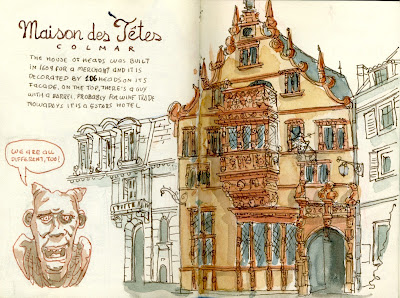 Maison des Têtes
COLMAR
THE HOUSE OF HEADS WAS BUILT
IN 1609 FOR A MERCHANT AND IT IS
DECORATED BY 106 HEADS ON ITS
FACADE, ON THE TOP, THERE'S A GUY
WITH A BARREL, PROBABLY FOR WINE TRADE
NOWADAYS IT IS A 5 STARS HOTEL
WE ARE ALL
DIFFERENT, TOO!